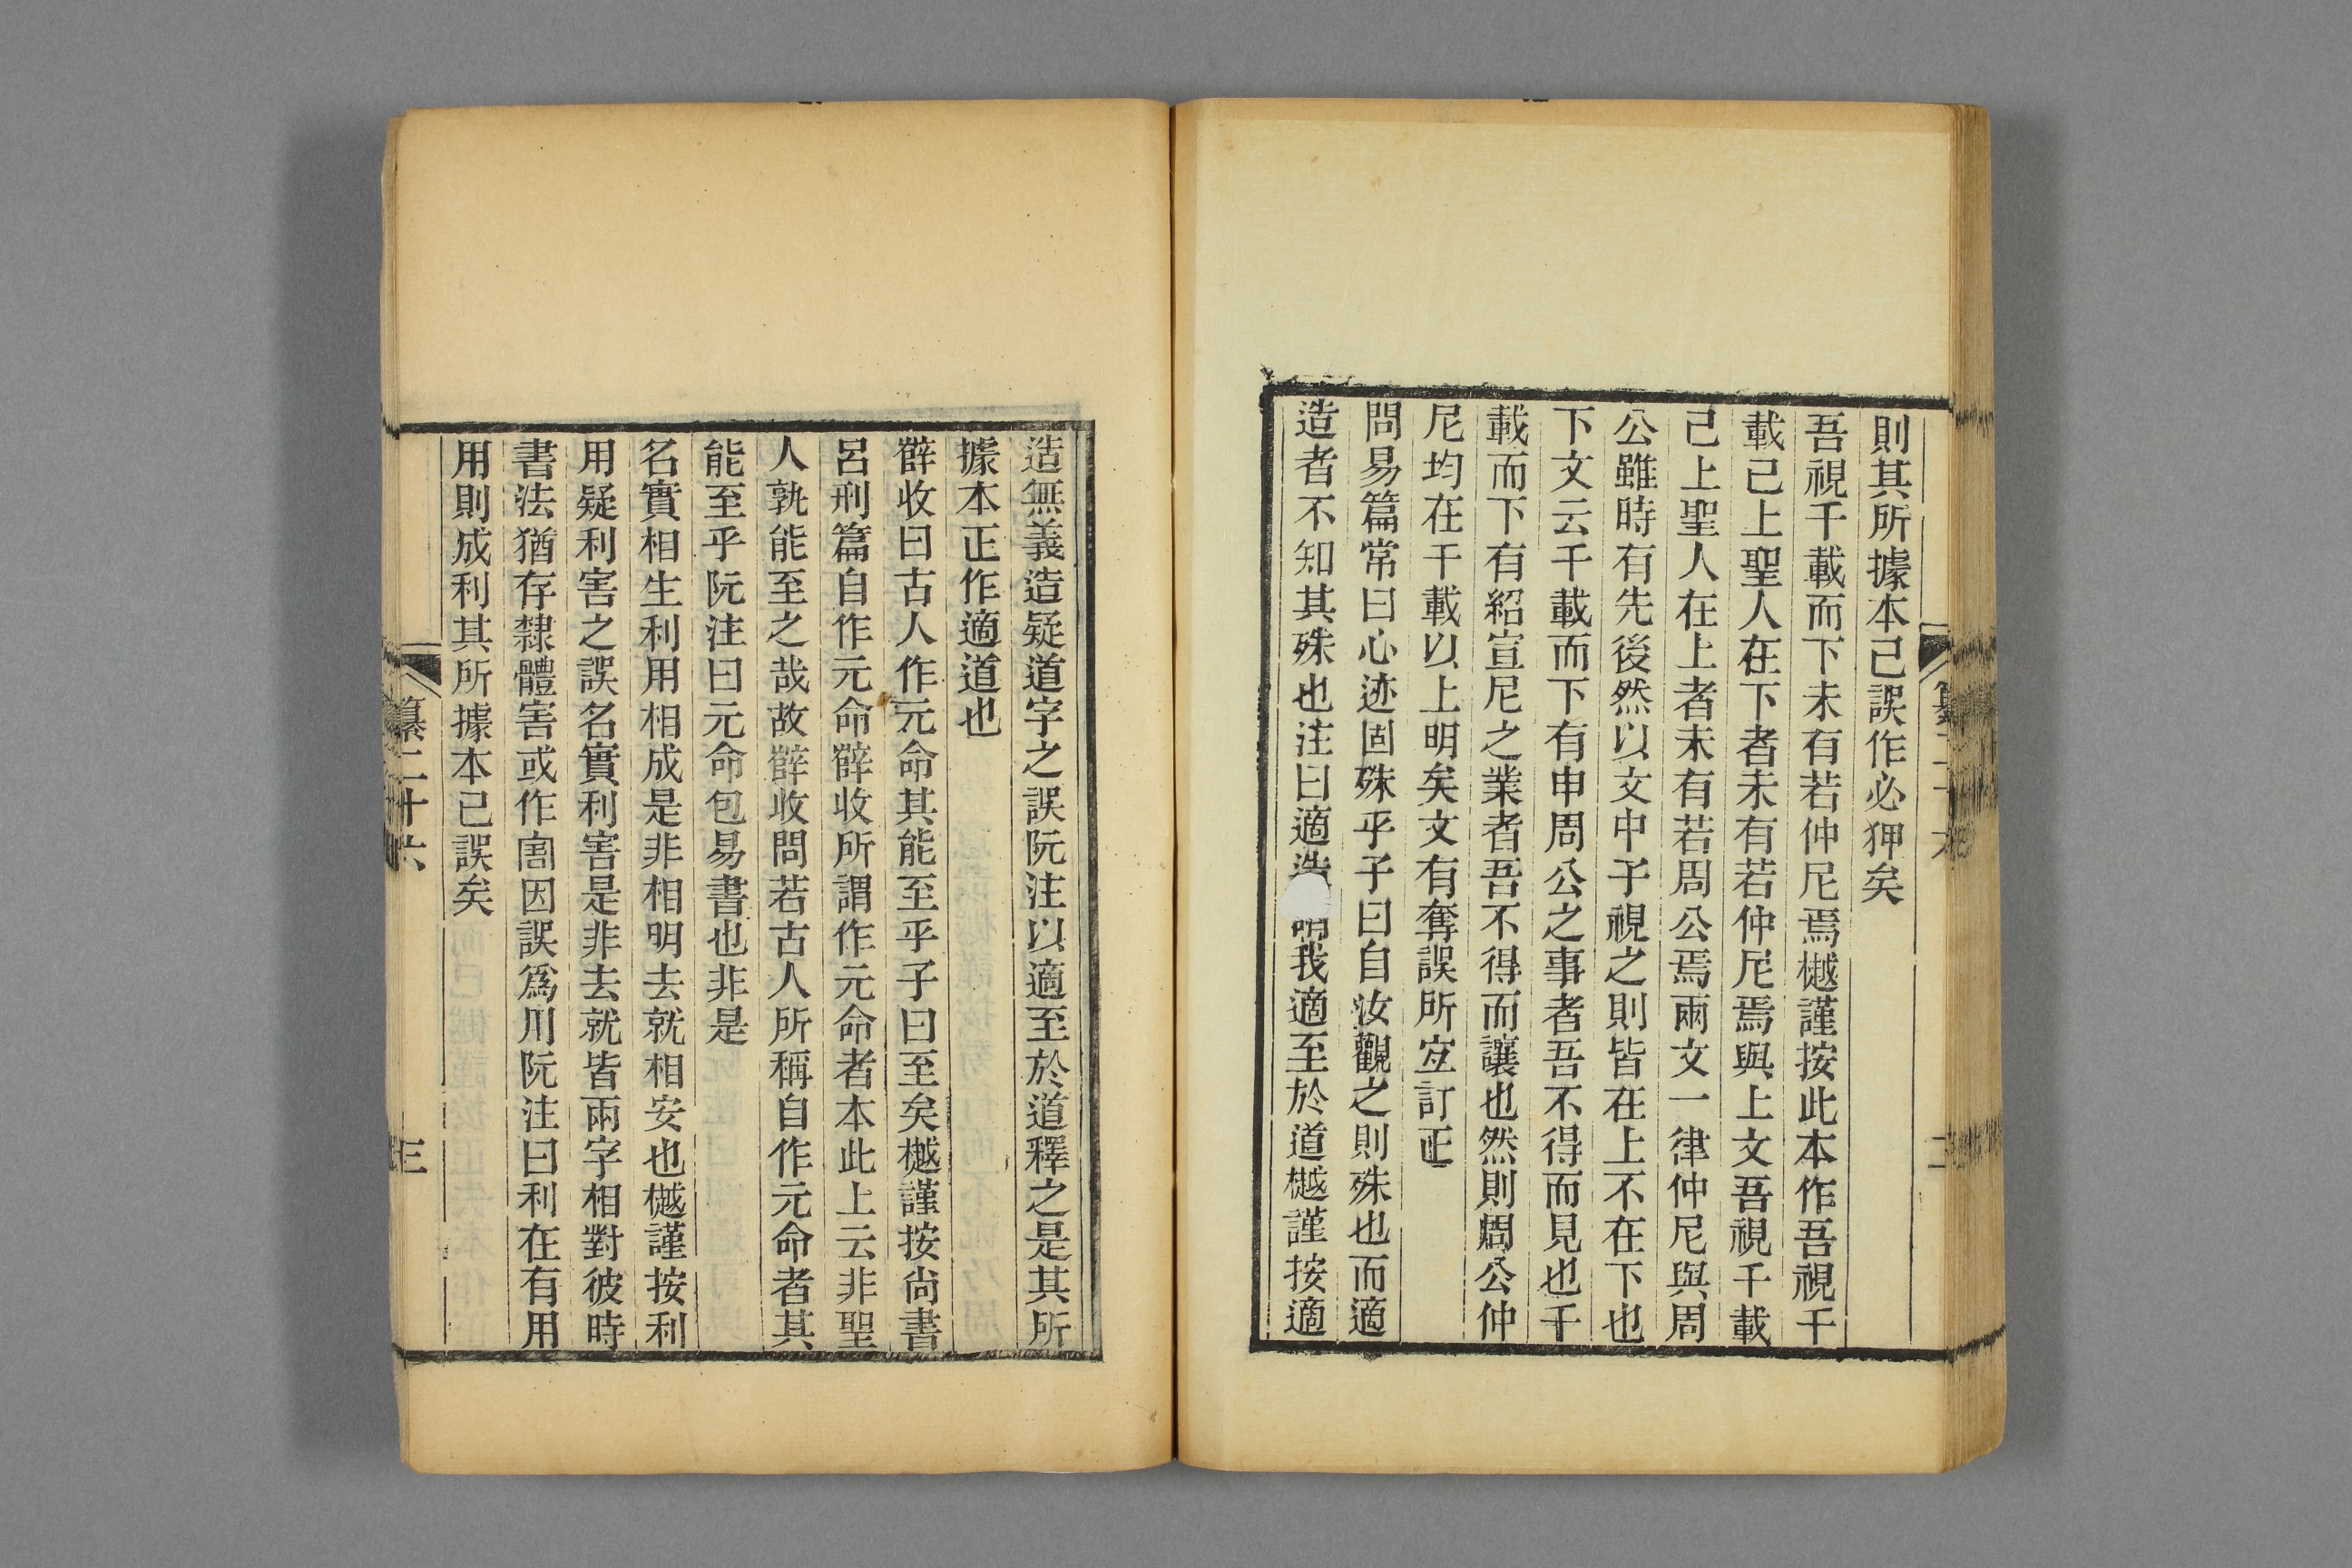 則其所據本已誤作必狎矣
吾視千載而下未有若仲尼焉樾謹按此本作吾視千
載已上聖人在下者未有若仲尼焉與上文吾視千載
已上聖人在上者未有若周公焉兩文一律仲尼與周
公雖時有先後然以文中子視之則皆在上不在下也
下文云千載而下有申周公之事者吾不得而見也千
載而下有紹宣尼之業者吾不得而讓也然則周公仲
尼均在千載以上明矣文有奪誤所宜訂正
問易篇常曰心迹固殊乎子曰自汝觀之則殊也而適
造者不知其殊也注曰適造謂我適至於道樾謹按適
纂二十六
二
造無義造疑道字之誤阮注以適至於道釋之是其所
據本正作適道也
辥收曰古人作元命其能至乎子曰至矣樾謹按尚書
呂刑篇自作元命辥收所謂作元命者本此上云非聖
人孰能至之哉故辥收問若古人所稱自作元命者其
能至乎阮注曰元命包易書也非是
名實相生利用相成是非相明去就相安也樾謹按利
用疑利害之誤名實利害是非去就皆兩字相對彼時
書法猶存隸體害或作周因誤爲用阮注曰利在有用
用則成利其所據本已誤矣
纂二十六
三